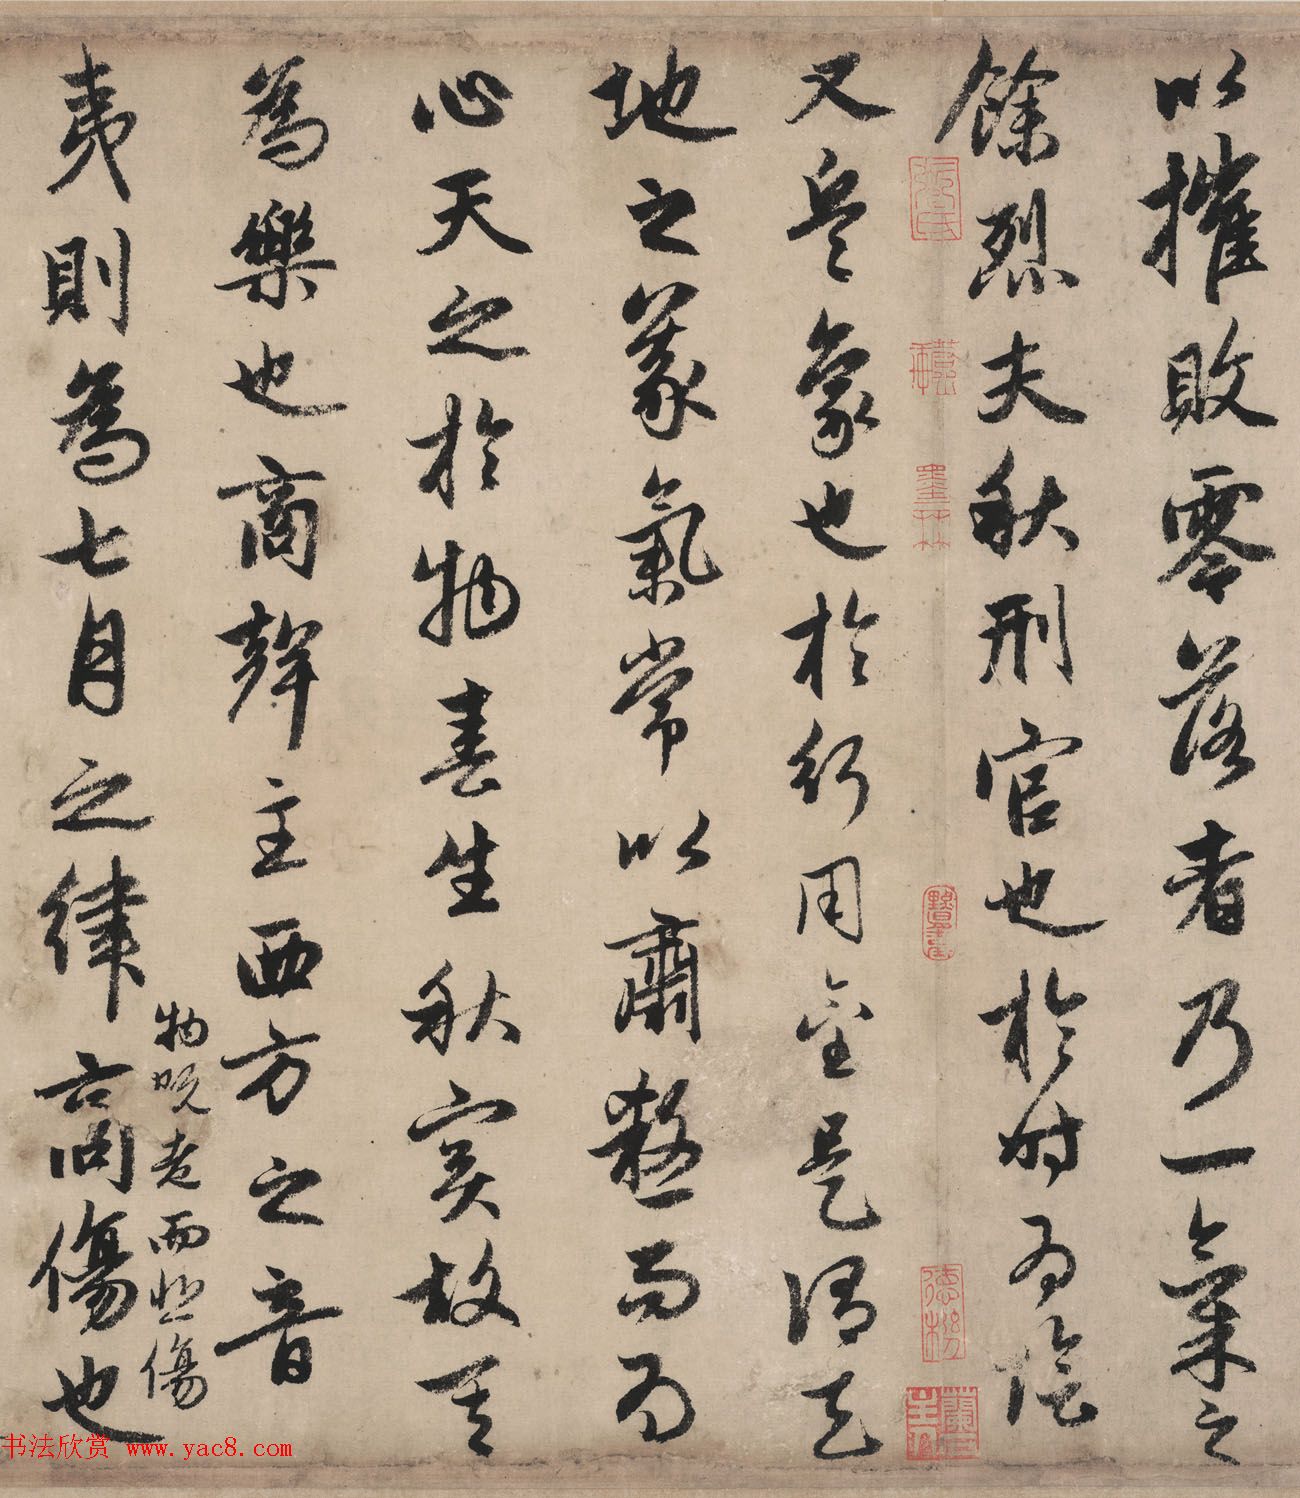 以摧敗零落者乃一氣之
餘烈夫秋刑官也於時為陰
又兵象也於行用金是謂天
地之義氣常以肅殺而為
心天之於物春生秋實故其
為樂也商聲主西方之音
夷則為七月之律商傷也
物既老而悲傷
书法欣赏 www.yac8.com